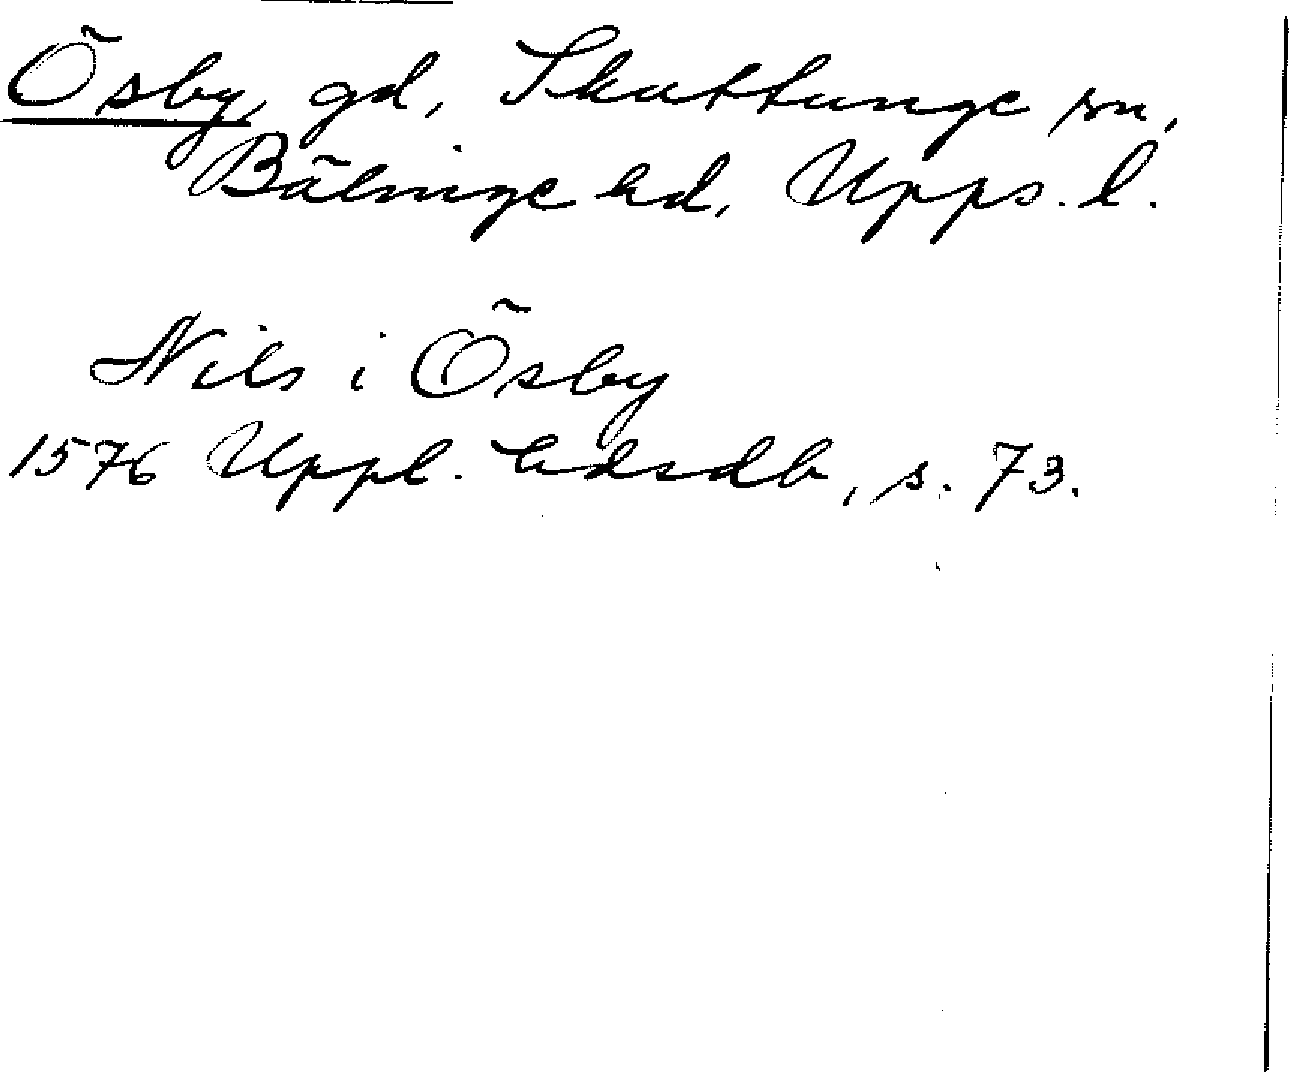 Ösby, gd, Skuttunge sn,
Bälinge hd, Upps. l.
Nils i Ösby
1576 Uppl. hdsdb, s. 73.